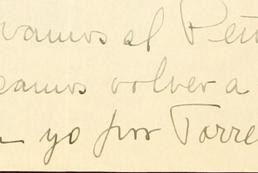 vamos al Peti
eamos volver a
yo por Torre